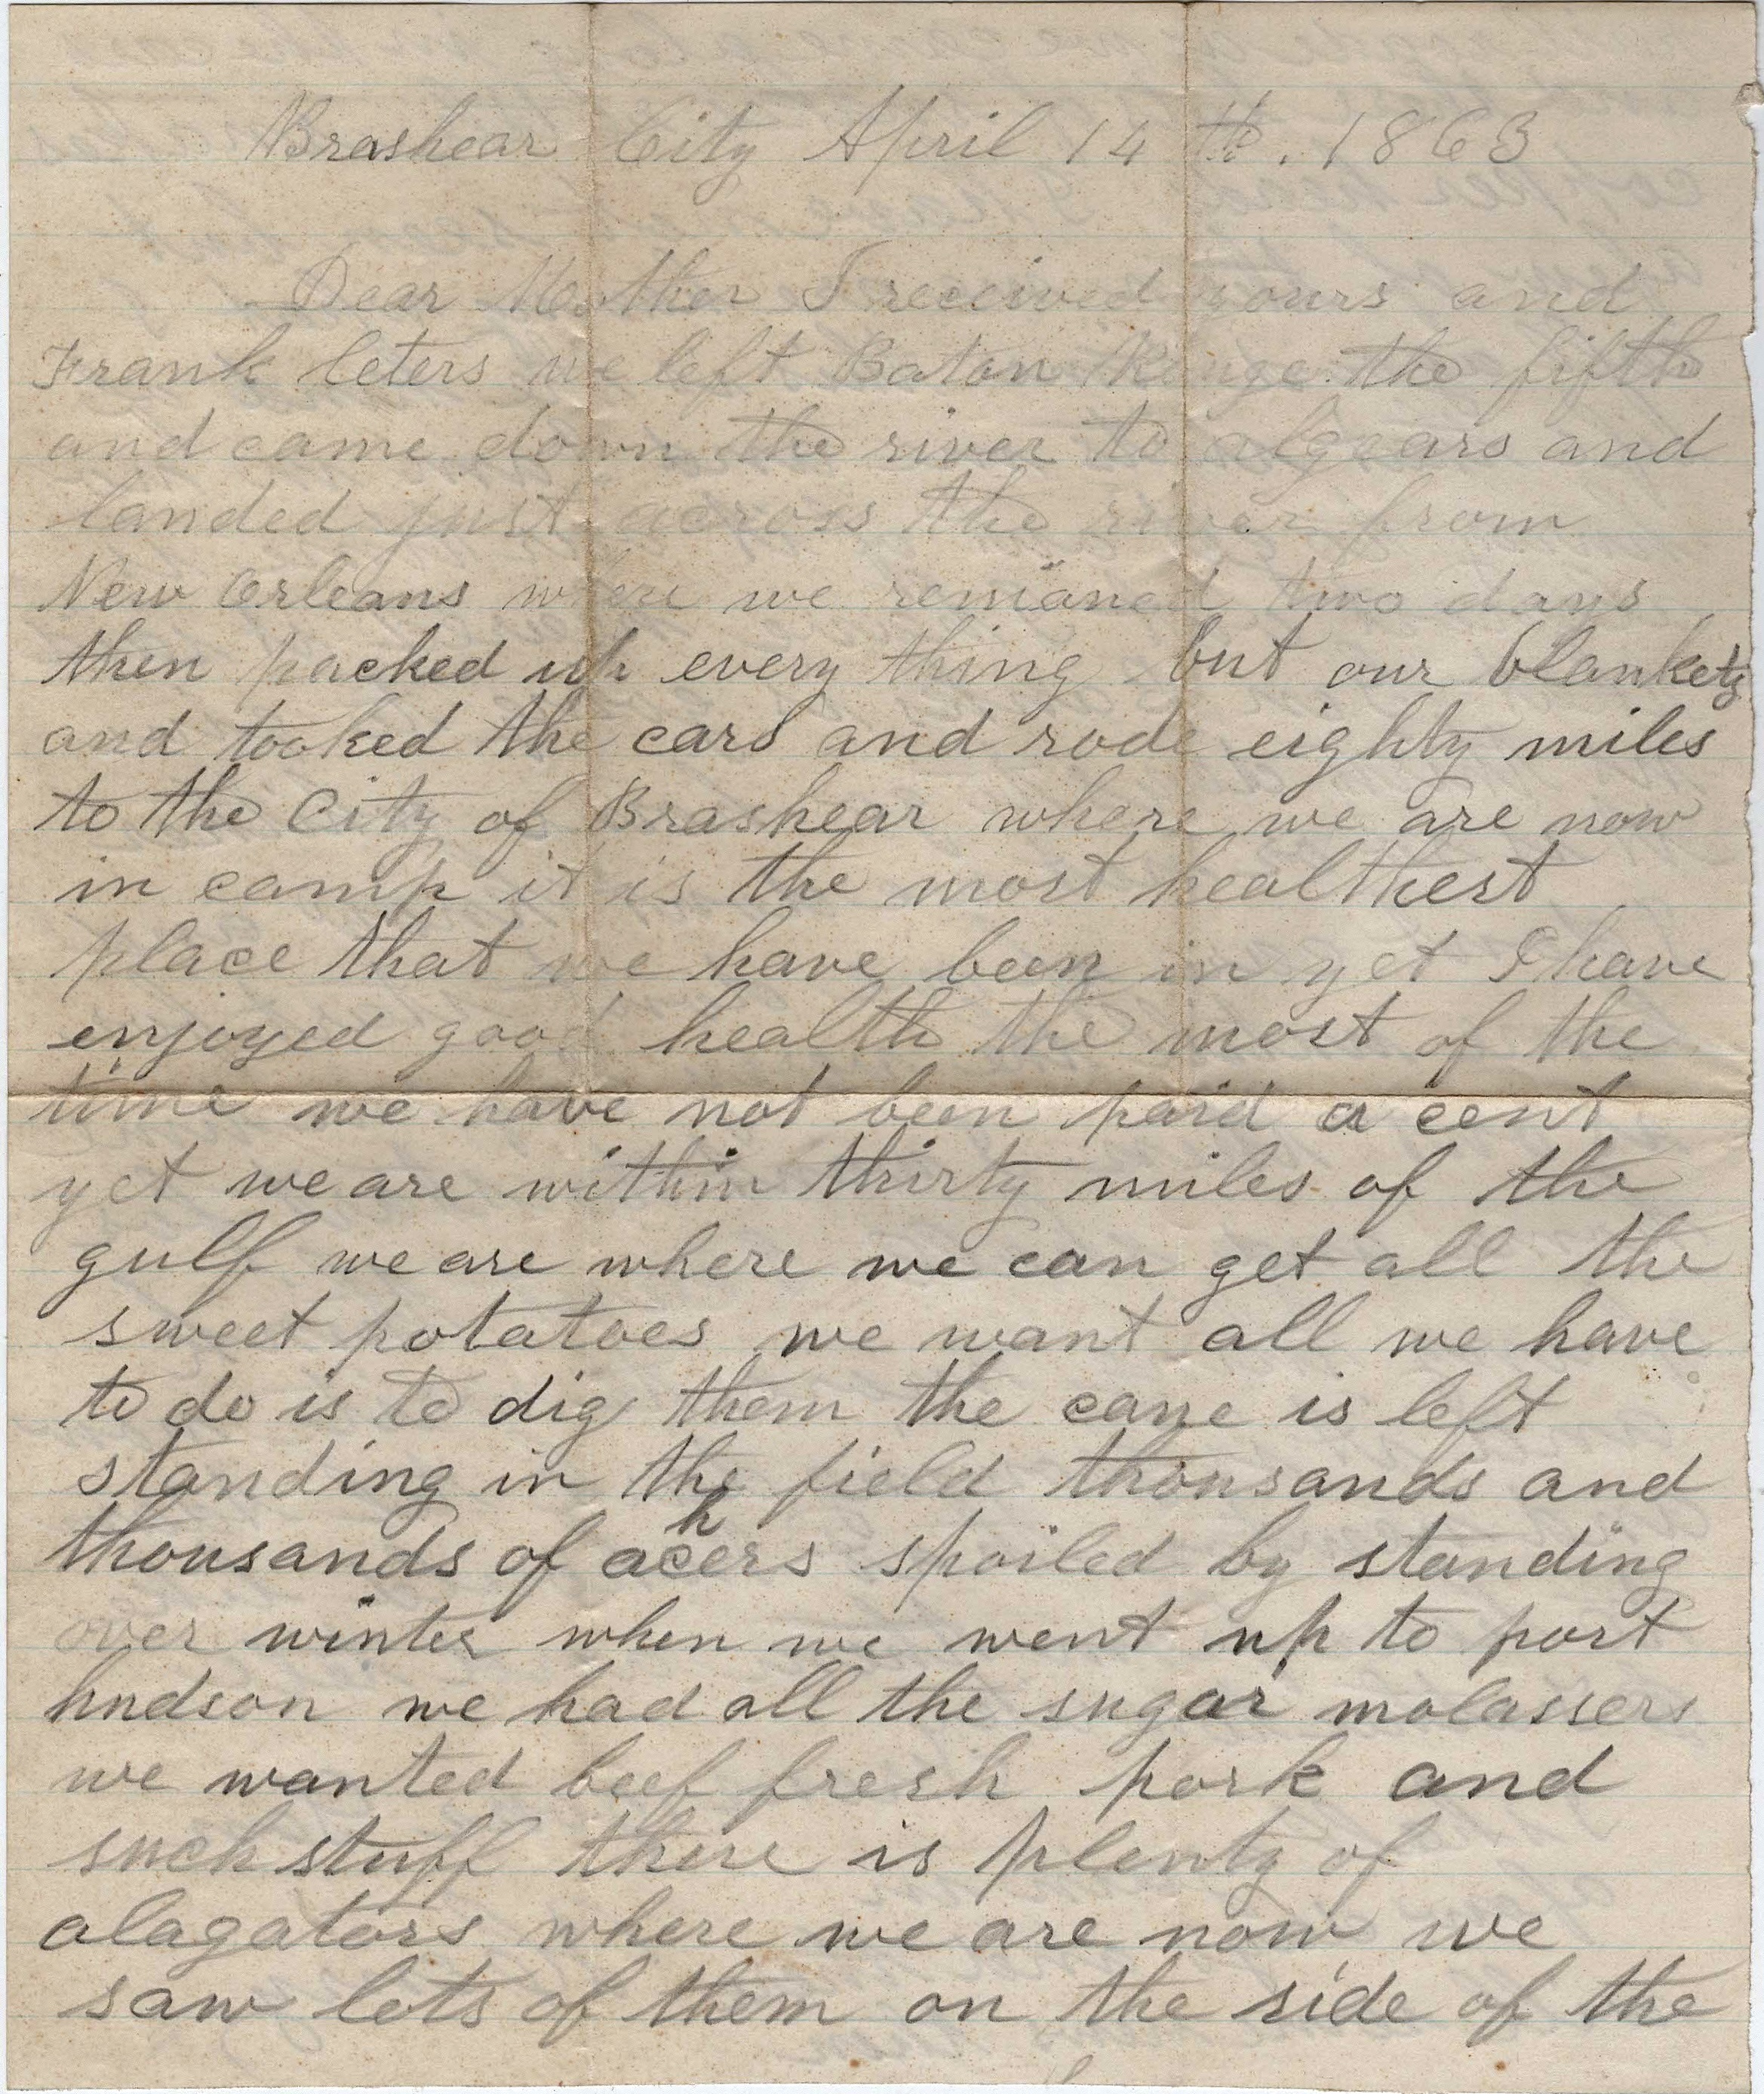 Brashear City April 14 th. 1863
Dear Mother I received yours and
Frank leters we left Baton Rouge the fifth
and came down the river to algears and
landed just across the river from
New Orleans where we remianed two days
then packed up every thing but our blankets
and tooked the cars and rode eighty miles
to the City of Brashear where we are now
in camp it is the most healthest
place that we have been in yet I have
enjoyed good health the most of the
time we have not been paid a cent
yet we are within thirty miles of the
gulf we are where we can get all the
sweet potatoes we want all we have
to do is to dig them the cane is left
standing in the field thousands and
thousands of achers spoiled by standing
over winter when we went up to port
hudson we had all the sugar molassers
we wanted beef fresh pork and
such stuff there is plenty of
alagators where we are now we
saw lots of them on the side of the